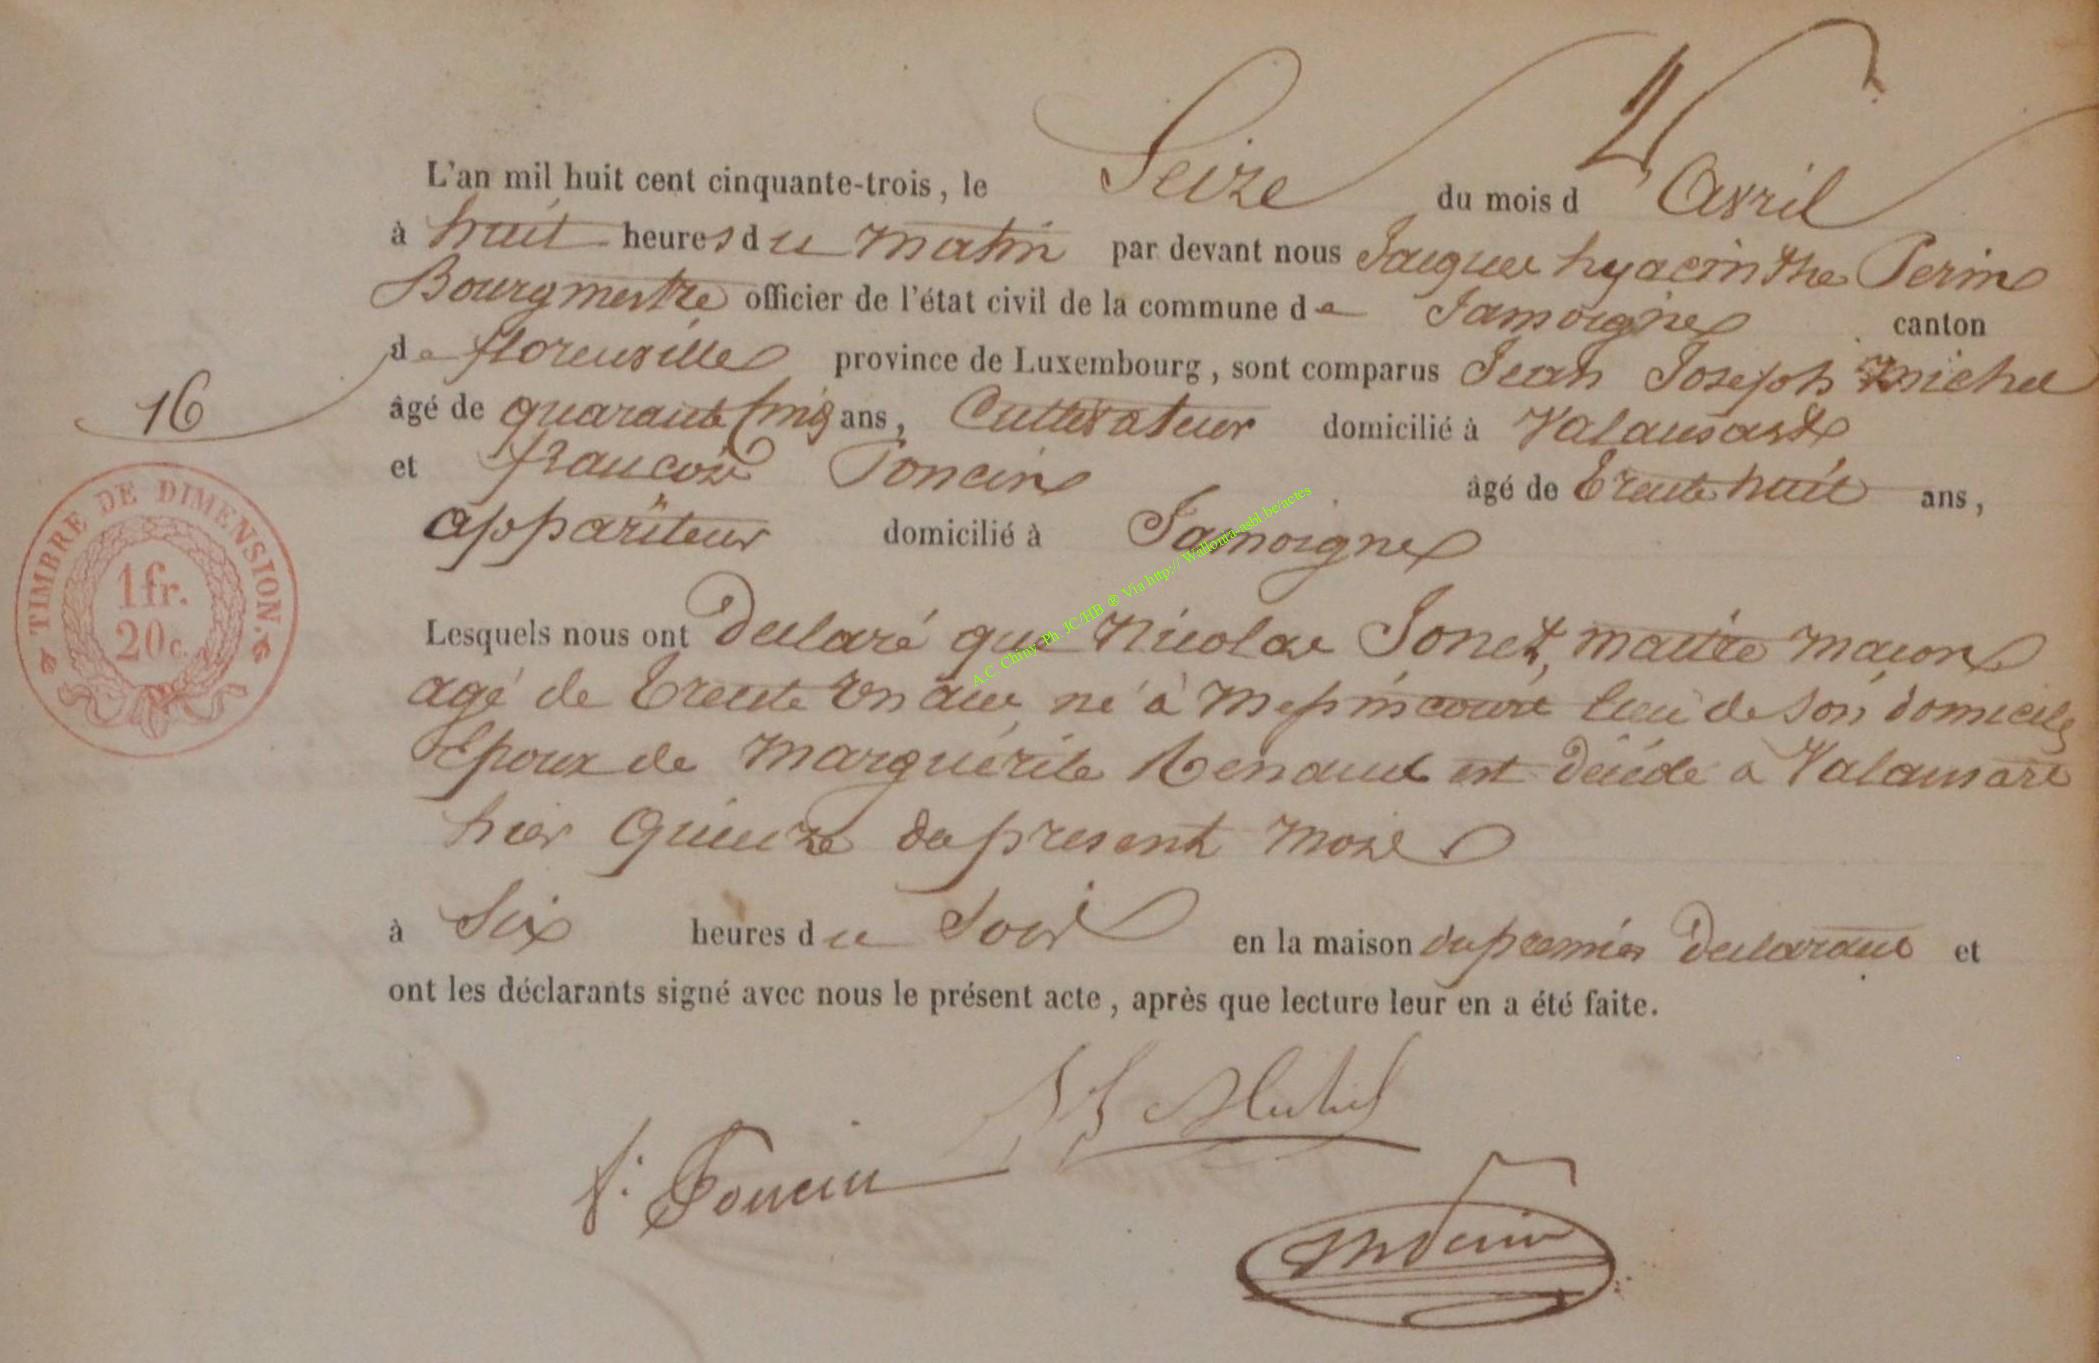 L'an mil huit cent cinquante-trois, le Seize du mois d' Avril
à huit heures du matin par devant nous Jacques hyacinthe Perin
Bourgmestre officier de l'état civil de la commune de Jamoigne canton
de florenville province de Luxembourg, sont comparus Jean Joseph Michel
16
âgé de quarante cinq ans, Cultivateur domicilié à Valansart
et francois Poncin âgé de trente huit ans,
appariteur domicilié à Jamoigne
TIMBRE DE DIMENSION.
1 fr.
20 c.
Lesquels nous ont declaré que Nicolas Jonet, maitre macon
agé de trente un ans, né à Mepincourt lieu de son domicile
Epoux de Marguerite Renauld est décédé à Valansart
hier quinze du present mois
à Six heures du Soir en la maison du premier declarant et
ont les déclarants signé avec nous le présent acte, après que lecture leur en a été faite.
JJ Michel
f. Poncin
Perin
A.C Chiny- Ph JC/HB ® Via http:// Wallonia-asbl be/actes